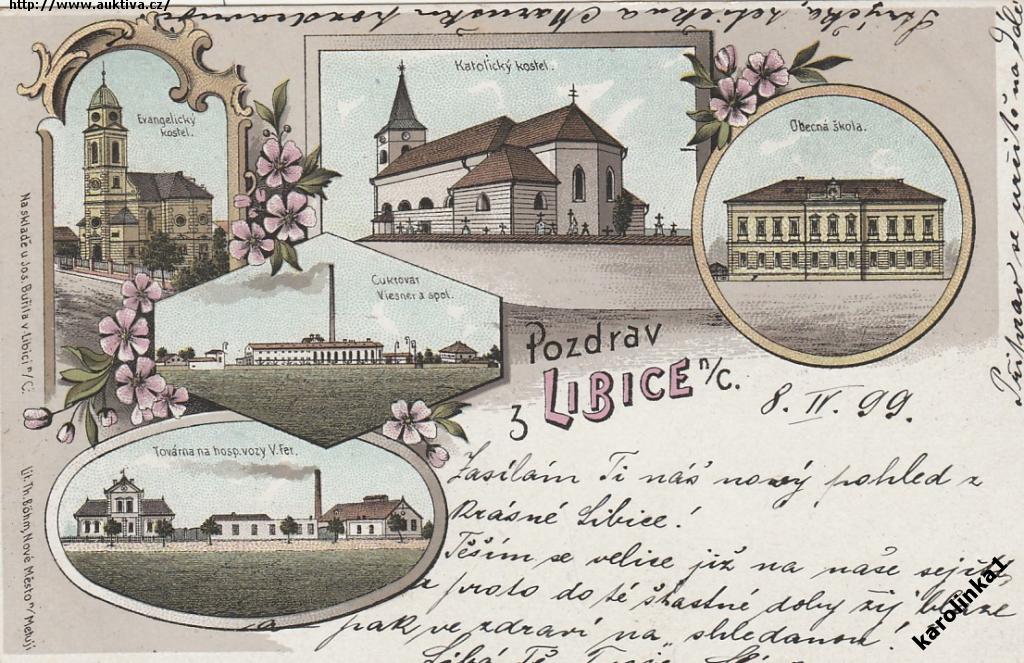 http://www.auktiva.cz/
Evangelický
kostel.
Katolický kostel.
Obecná škola.
Cukrovar
Viesner a spol.
Pozdrav
z LIBICE n/C.
8. IV. 99.
Továrna na hosp. vozy V. Fer.
Zasílám Ti náš nový pohled z
Krásné Libice!
Těším se velice již na naše
a proto do té šťastné doby žij blaze
a pak ve zdraví na shledanou!
Líbá Tě
Na skladě u Jos. Buřila v Libici n/C.
Lit. Th. Böhm, Nové Město n/Metují
karolinka1